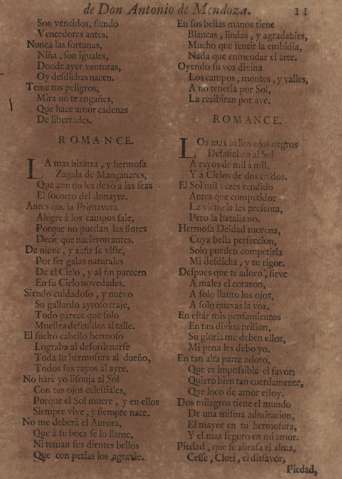 de Don Antonio de Mendoza. 11
Son vendidos, siendo
Vencedores antes.
Nunca las fortunas,
Niña, son iguales,
Donde ayer venturas,
Oy desdichas nacen.
Teme tus peligros,
Mira no te engañes,
Que hace amor cadenas
De libertades.
ROMANCE.
LA mas bizarra, y hermosa
Zagala de Manzanares,
Que aun no les dexò à las feas
El socorro del donayre.
Antes que la Primavera
Alegre à los campos sale,
Porque no puedan las flores
Decir que nacieron antes.
De nieve, y
Por ser galas naturales
De el Cielo, y al fin parecen
En su Cielo novedades.
Siendo cuidadoso, y nuevo
Su gallardo ayroso trage,
Todo parece que solo
Muestra defectos al talle.
El suelto cabello hermoso
Lograba al desordenarse
Toda su hermosura al dueño,
Todos sus rayos al ayre.
No harè yo lisonja al Sol
Con tus ojos celestiales,
Porque el Sol muere, y en ellos
Siempre vive, y siempre nace.
No me deberà el Aurora,
Que à tu boca se lo llame,
Ni tenian sus dientes bellos
Que con perlas los agravie.
En sus bellas manos tiene
Blancas, lindas, y agradables,
Mucho que sentir la embidia,
Nada que enmendar el arte.
Oyendo su voz divina
Los campos, montes, y valles,
A no tenerla por Sol,
La tuvieran por ave.
ROMANCE.
LOs mas bellos ojos negros
Desafiaban al Sol
A rayos de mil à mil,
Y à Cielos de dos en dos.
El Sol mil veces rendido
Antes que competidor
La victoria les presenta,
Pero la batalla no.
Hermosa Deidad morena,
Cuya bella perfeccion,
Solo pueden competirla
Mi desdicha, y tu rigor.
Despues que te adoro, tiene
A males el corazon,
A solo llanto los ojos,
A solo quexas la voz.
En estàr mis pensamientos
En tan divina prision,
Su gloria me deben ellos,
Mi pena les debo yo.
En tan alta parte adoro,
Que es impossible el favor;
Quiero bien tan cuerdamente,
Que loco de amor estoy.
Dos milagros tiene el mundo
De una misma admiracion,
El mayor en tu hermosura,
Y el mas seguro en mi amor.
Piedad, que se abrasa el alma,
Cesse, Clori, el disfavor,
Piedad,